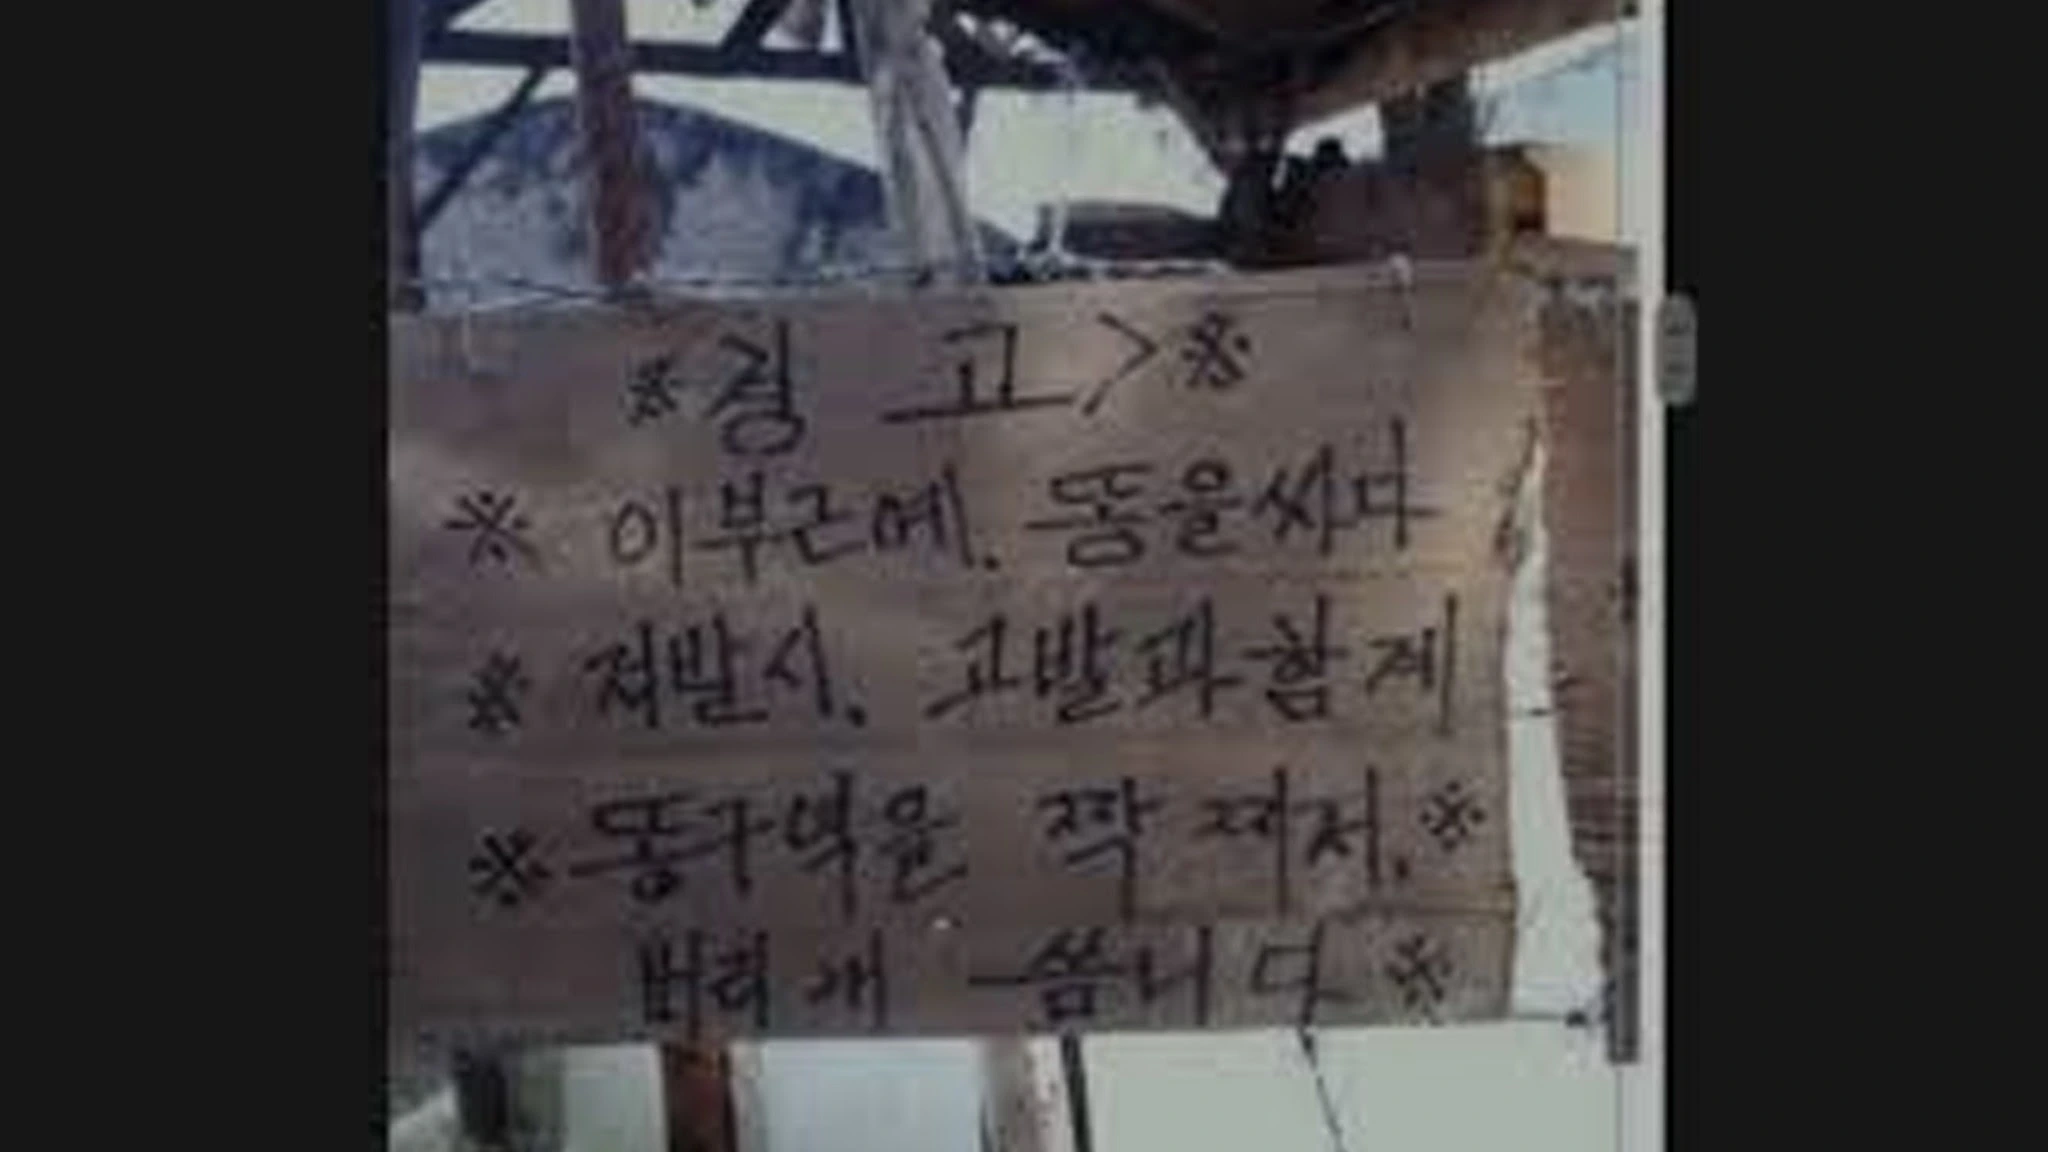 ※경 고>※
※ 이부근에. 똥을싸다
※ 적발시. 고발과함게
※ 똥구먹을 짝 찌저.※
버리개 씀니다※